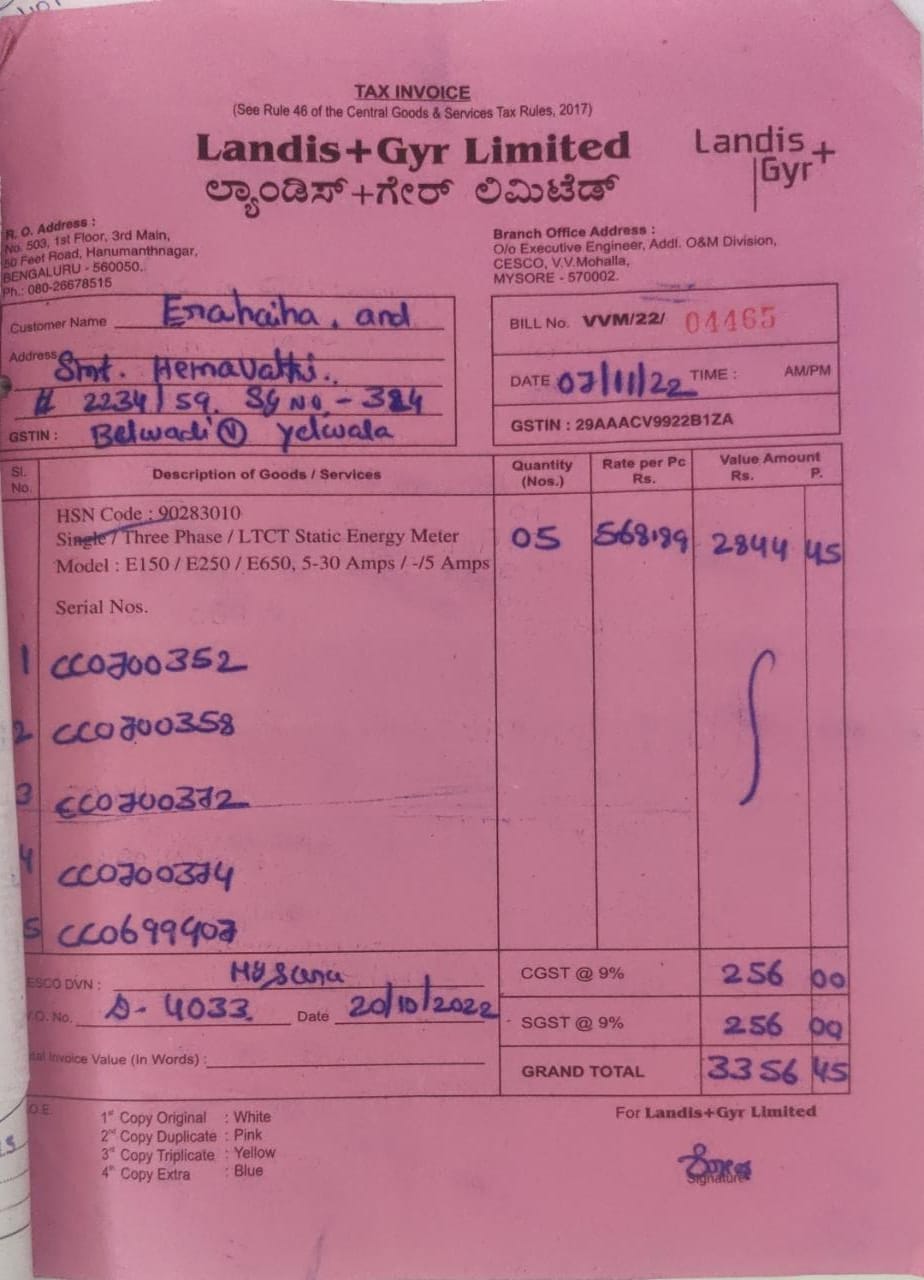 TAX INVOICE
(See Rule 46 of the Central Goods & Services Tax Rules, 2017)
Landis+Gyr Limited
ಲ್ಯಾಂಡಿಸ್+ಗೇರ್ ಲಿಮಿಟೆಡ್
Landis+
Gyr
R. O. Address :
No. 503, 1st Floor, 3rd Main,
80 Feet Road, Hanumanthnagar,
BENGALURU - 560050.
Ph.: 080-26678515
Branch Office Address :
O/o Executive Engineer, Addl. O&M Division,
CESCO, V.V.Mohalla,
MYSORE - 570002.
Customer Name Erahaiha, and
Address Smt. Hemavathi..
# 2234/59. Sy No.- 384
GSTIN : Belwadi (V) yelwala
BILL No. VVM/22/ 04465
DATE 07/11/22 TIME : AM/PM
GSTIN : 29AAACV9922B1ZA
Sl. No. Description of Goods / Services Quantity (Nos.) Rate per Pc Rs. Value Amount Rs. P.
HSN Code : 90283010
Single / Three Phase / LTCT Static Energy Meter 05 568.89 2844 45
Model : E150 / E250 / E650, 5-30 Amps / -/5 Amps
Serial Nos.
1 CC0700352
2 CC0700358
3 CC0700372
4 CC0700374
5 CC0699407
ESCO DVN : Mysuru
.O. No. D- 4033 Date 20/10/2022
tal Invoice Value (In Words) :
CGST @ 9% 256 00
SGST @ 9% 256 00
GRAND TOTAL 3356 45
.O.E.
1st Copy Original : White
2nd Copy Duplicate : Pink
3rd Copy Triplicate : Yellow
4th Copy Extra : Blue
For Landis+Gyr Limited
Signature